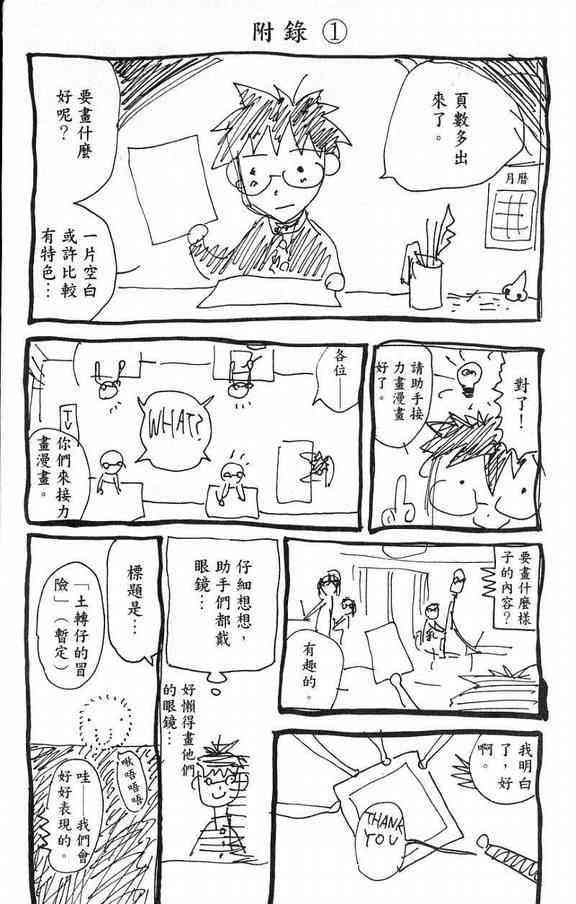 附錄 ①
頁數多出
來了。
月曆
要畫什麼
好呢？
一片空白
或許比較
有特色…
對了！
請助手接
力畫漫畫
好了。
各位——
WHAT?
TV
你們來接力
畫漫畫。
要畫什麼樣
子的內容？
有趣的。
我明白
了，好
啊。
THANK
YOU
仔細想想，
助手們都戴
眼鏡…
好懶得畫他們
的眼鏡…
標題是…
「土轉仔的冒
險」（暫定）
啾唔唔唔
哇——我們會
好好表現的。